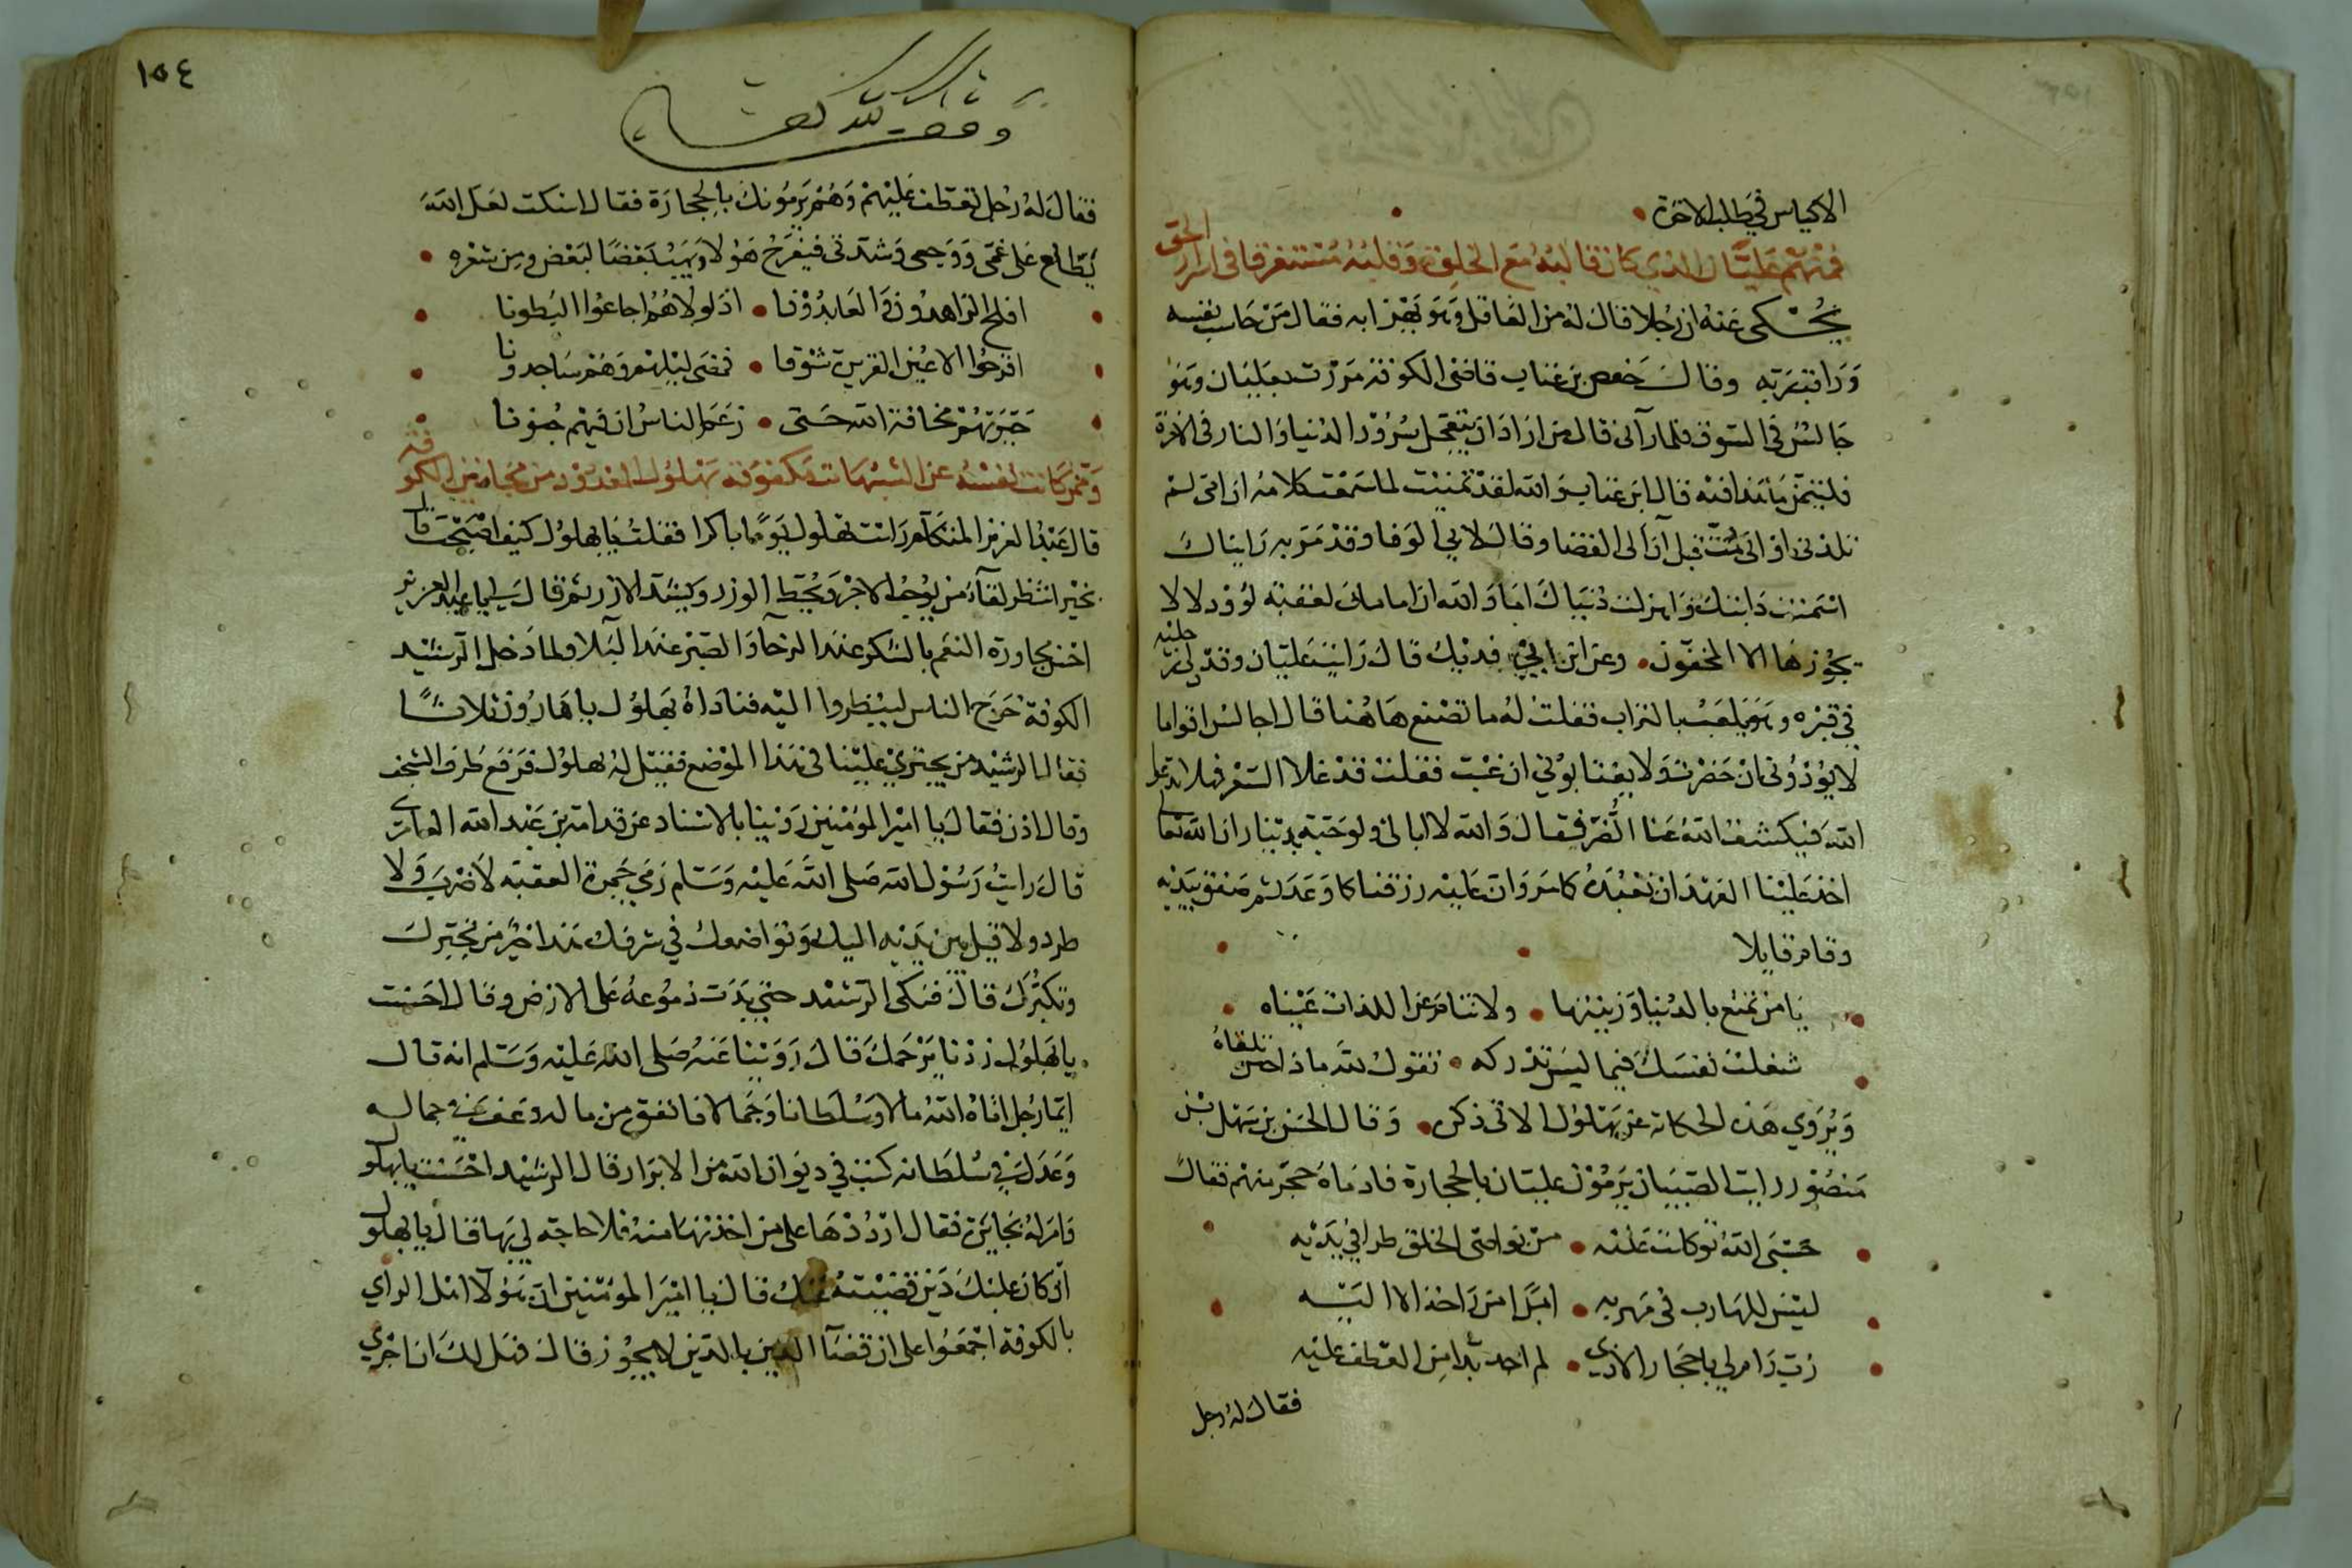 الاكياس في طلب الاخرة
فمنهم عليان الذي كان قالبه مع الخليقة وقلبه مستغرقا في اسرار الحق
يحكى عنه ان رجلا قال له من العاقل وهو يهزا به فقال من حاسب نفسه
وراقب ربه وقال حفص بن غياث قاضي الكوفة مررت بعليان وهو
جالس في السوق فلما رآني قال من اراد ان يتعجل سرور الدنيا والنار في الاخرة
فليتمن ما هذا فيه قال ابن غياث فوالله لقد تمنيت لما سمعت كلامه ان امي لم
تلدني او اني مت قبل ان الى القضا وقال لابي الوفا وقد مر به رايناك
اسمنت دابتك واهزلت دنياك اما والله ان امامك لعقبة كؤود لا
يجوزها الا المخفون وعن ابن ابي فديك قال رايت عليان وقد دلى رجليه
في قبره وهو يلعب بالتراب فقلت له ما تصنع هاهنا قال اجالس اقواما
لا يؤذوني ان حضرت ولا يغتابوني ان غبت فقلت قد غلا السعر فهلا تدعو
الله فيكشف الله عنا الضر فيقال والله لا ابالي ولو حبة بدينار ان الله تعالى
اخذ علينا العهد ان نعبده كما امر وان عليه رزقنا كما وعد ثم صفق بيديه
وقام قايلا
يا من تمتع بالدنيا وزينتها ولا تنام عن اللذات عيناه
شغلت نفسك فيما ليس تدركه تقول لله ماذا حين تلقاه
ويروي هذه الحكاية عن بهلول الاتي ذكره وقال الحسن بن سهل بن
منصور رايت الصبيان يرمون عليان بالحجارة فادماه حجر منهم فقال
حسبي الله توكلت عليه من نواصي الخلق طرا في يديه
ليس للهارب في مهربه ابدا من راحة الا اليه
رب رام لي باحجار الاذى لم اجد بدا من العطف عليه
فقال له رجل
١٥٤
وقف لله تعالى
فقال له رجل تعطف عليهم وهم يرمونك بالحجارة فقال اسكت لعل الله
يطلع على غمي ووجعي وشدتي فيفرح هؤلا ويهب بعضا لبعض ومن شعره
افلح الزاهدون والعابدونا اذ لمولاهم اجاعوا البطونا
اقرحوا الاعين القريرة شوقا فمضى ليلهم وهم ساجدونا
حيرتهم مخافة الله حتى زعم الناس ان فيهم جنونا
وممن كانت نفسه عن الشبهات مكفوفة بهلول المعدود من مجانين الكوفة
قال عبد العزيز المتكلم رايت بهلول يوما باكرا فقلت يا بهلول كيف اصبحت قال
بخير انتظر لقاء من يوجب الاجر ويحط الوزر ويشد الازر ثم قال لي يا عبد العزيز
احسن مجاورة النعم بالشكر عند الرخاء والصبر عند البلا ولما دخل الرشيد
الكوفة خرج الناس لينظروا اليه فناداه بهلول يا هارون ثلاثا
فقال الرشيد من يجتري علينا في هذا الموضع فقيل له بهلول فرفع طرف السجف
وقال اذن فقال يا امير المؤمنين روينا بالاسناد عن قدامة بن عبد الله العامري
قال رايت رسول الله صلى الله عليه وسلم رمي جمرة العقبة لا ضرب ولا
طرد ولا قيل بين يديه اليك وتواضعك في شرفك هذا خير من تجبرك
وتكبرك قال فبكى الرشيد حتى بدت دموعه على الارض وقال احسنت
يا بهلول زدنا يرحمك قال روينا عنه صلى الله عليه وسلم انه قال
ايما رجل اتاه الله مالا وسلطانا وجمالا فانفق من ماله وعف في جماله
وعدل في سلطانه كتب في ديوان الله من الابرار قال الرشيد احسنت يا بهلول
وامر له بجايزة فقال ارددها على من اخذتها منه فلا حاجة لي بها قال يا بهلول
ان كان عليك دين قضيته عنك قال يا امير المؤمنين ان هؤلا اهل الراي
بالكوفة اجمعوا على ان قضا الدين بالدين لا يجوز قال فهل لك ان اجري